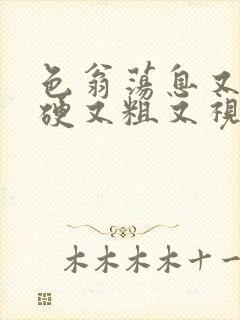 色翁荡息又
硬又粗又视
木木木木十一